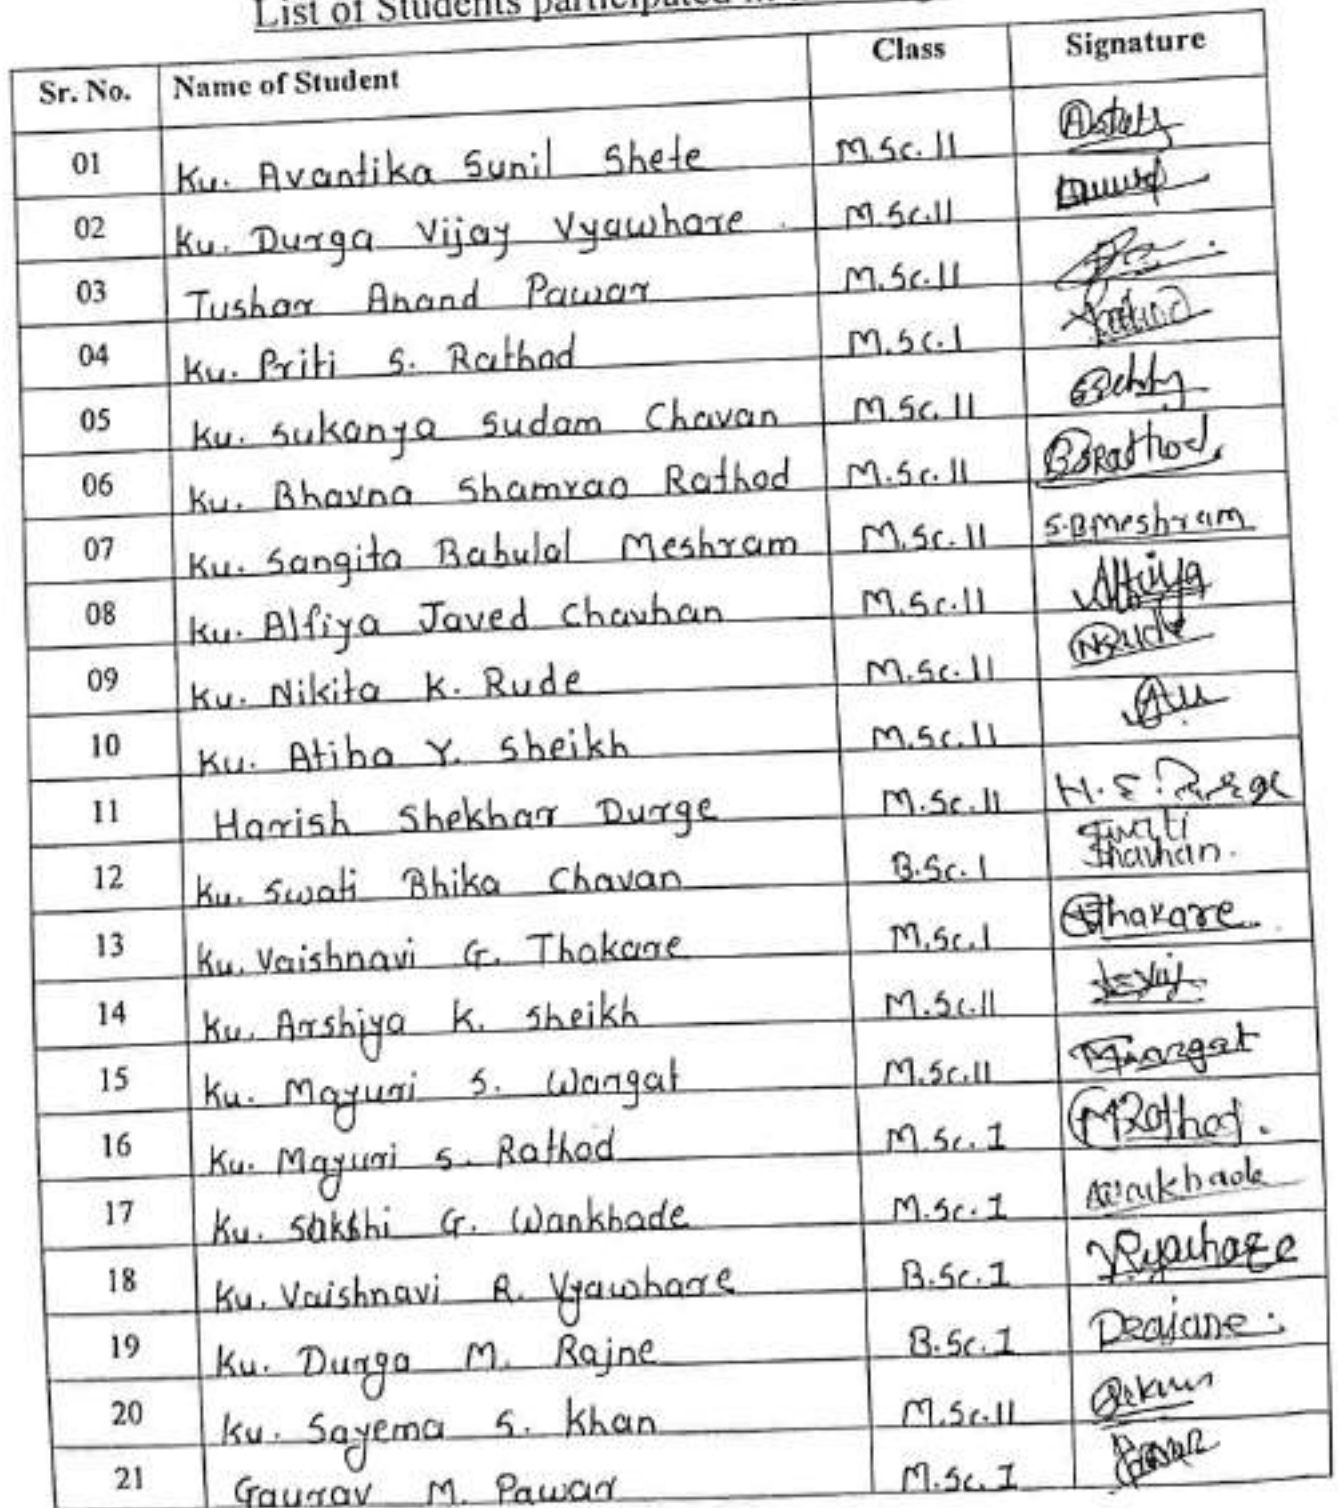 List of Students participated
Sr. No. Name of Student Class Signature
01 Ku. Avantika Sunil Shete M.Sc.II
02 Ku. Durga Vijay Vyawhare M.Sc.II
03 Tushar Anand Pawar M.Sc.II
04 Ku. Priti S. Rathod M.Sc.I
05 Ku. Sukanya Sudam Chavan M.Sc.II
06 Ku. Bhavna Shamrao Rathod M.Sc.II BSRathod
07 Ku. Sangita Babulal Meshram M.Sc.II S.B.Meshram
08 Ku. Alfiya Javed Chavhan M.Sc.II
09 Ku. Nikita K. Rude M.Sc.II NRude
10 Ku. Atiba Y. Sheikh M.Sc.II
11 Harish Shekhar Durge M.Sc.II H.S.Durge
12 Ku. Swati Bhika Chavan B.Sc.I Swati
13 Ku. Vaishnavi G. Thakare M.Sc.I Thakare
14 Ku. Arshiya K. Sheikh M.Sc.II
15 Ku. Mayuri S. Wargat M.Sc.II
16 Ku. Mayuri S. Rathod M.Sc.I MRathod.
17 Ku. Sakshi G. Wankhade M.Sc.I
18 Ku. Vaishnavi R. Vyawhare B.Sc.I
19 Ku. Durga M. Rajne B.Sc.I
20 Ku. Sayema S. Khan M.Sc.II
21 Gaurav M. Pawar M.Sc.I